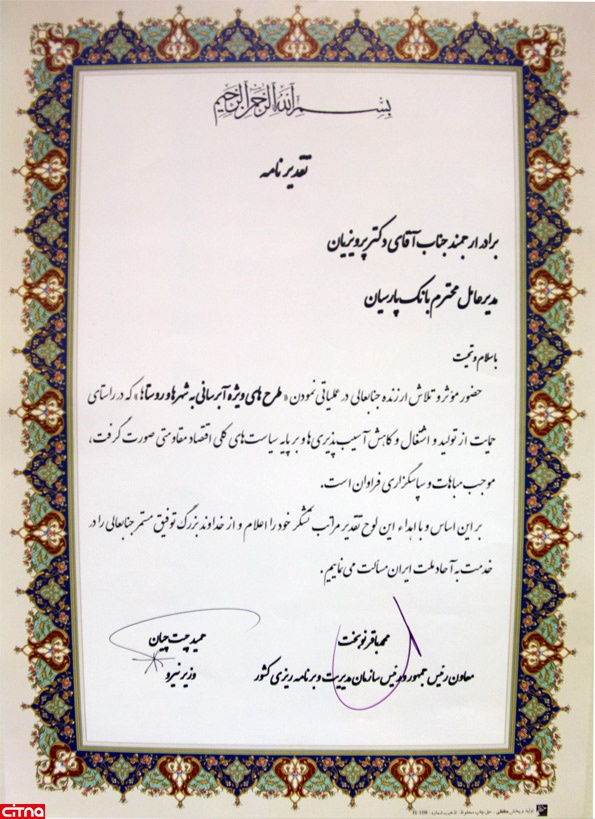 بسم الله الرحمن الرحیم
تقدیر نامه
برادر ارجمند جناب آقای دکتر پرویزیان
مدیرعامل محترم بانک پارسیان
باسلام و تحیت
حضور مؤثر و تلاش ارزنده جنابعالی در عملیاتی نمودن « طرح های ویژه آبرسانی به شهرها و روستاها» که در راستای
حمایت از تولید و اشتغال و کاهش آسیب پذیری ها و بر پایه سیاست های کلی اقتصاد مقاومتی صورت گرفت،
موجب مباهات و سپاسگزاری فراوان است.
بر این اساس و با اهداء این لوح تقدیر مراتب تشکر خود را اعلام و از خداوند بزرگ توفیق مستمر جنابعالی را در
خدمت به آحاد ملت ایران مسألت می نماییم.
محمدباقر نوبخت
معاون رئیس جمهور و رئیس سازمان مدیریت و برنامه ریزی کشور
حمید چیت چیان
وزیر نیرو
citna